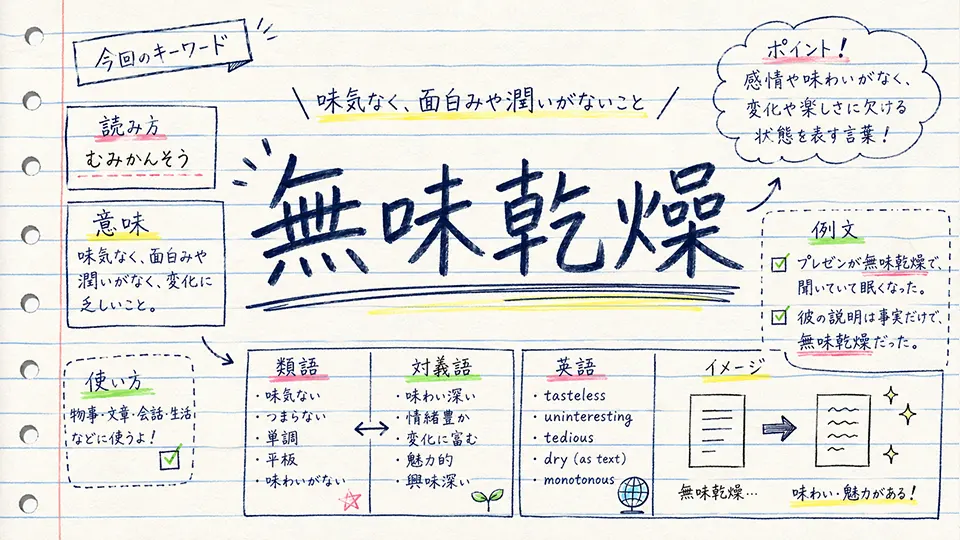 今回のキーワード
味気なく、面白みや潤いがないこと
無味乾燥
ポイント！
感情や味わいがなく、
変化や楽しさに欠ける
状態を表す言葉！
読み方
むみかんそう
意味
味気なく、面白みや
潤いがなく、変化に
乏しいこと。
例文
プレゼンが無味乾燥で、
聞いていて眠くなった。
彼の説明は事実だけで、
無味乾燥だった。
使い方
物事・文章・会話・生活
などに使うよ！
類語
・味気ない
・つまらない
・単調
・平板
・味わいがない
対義語
・味わい深い
・情緒豊か
・変化に富む
・魅力的
・興味深い
英語
・tasteless
・uninteresting
・tedious
・dry (as text)
・monotonous
イメージ
無味乾燥…
味わい・魅力がある！